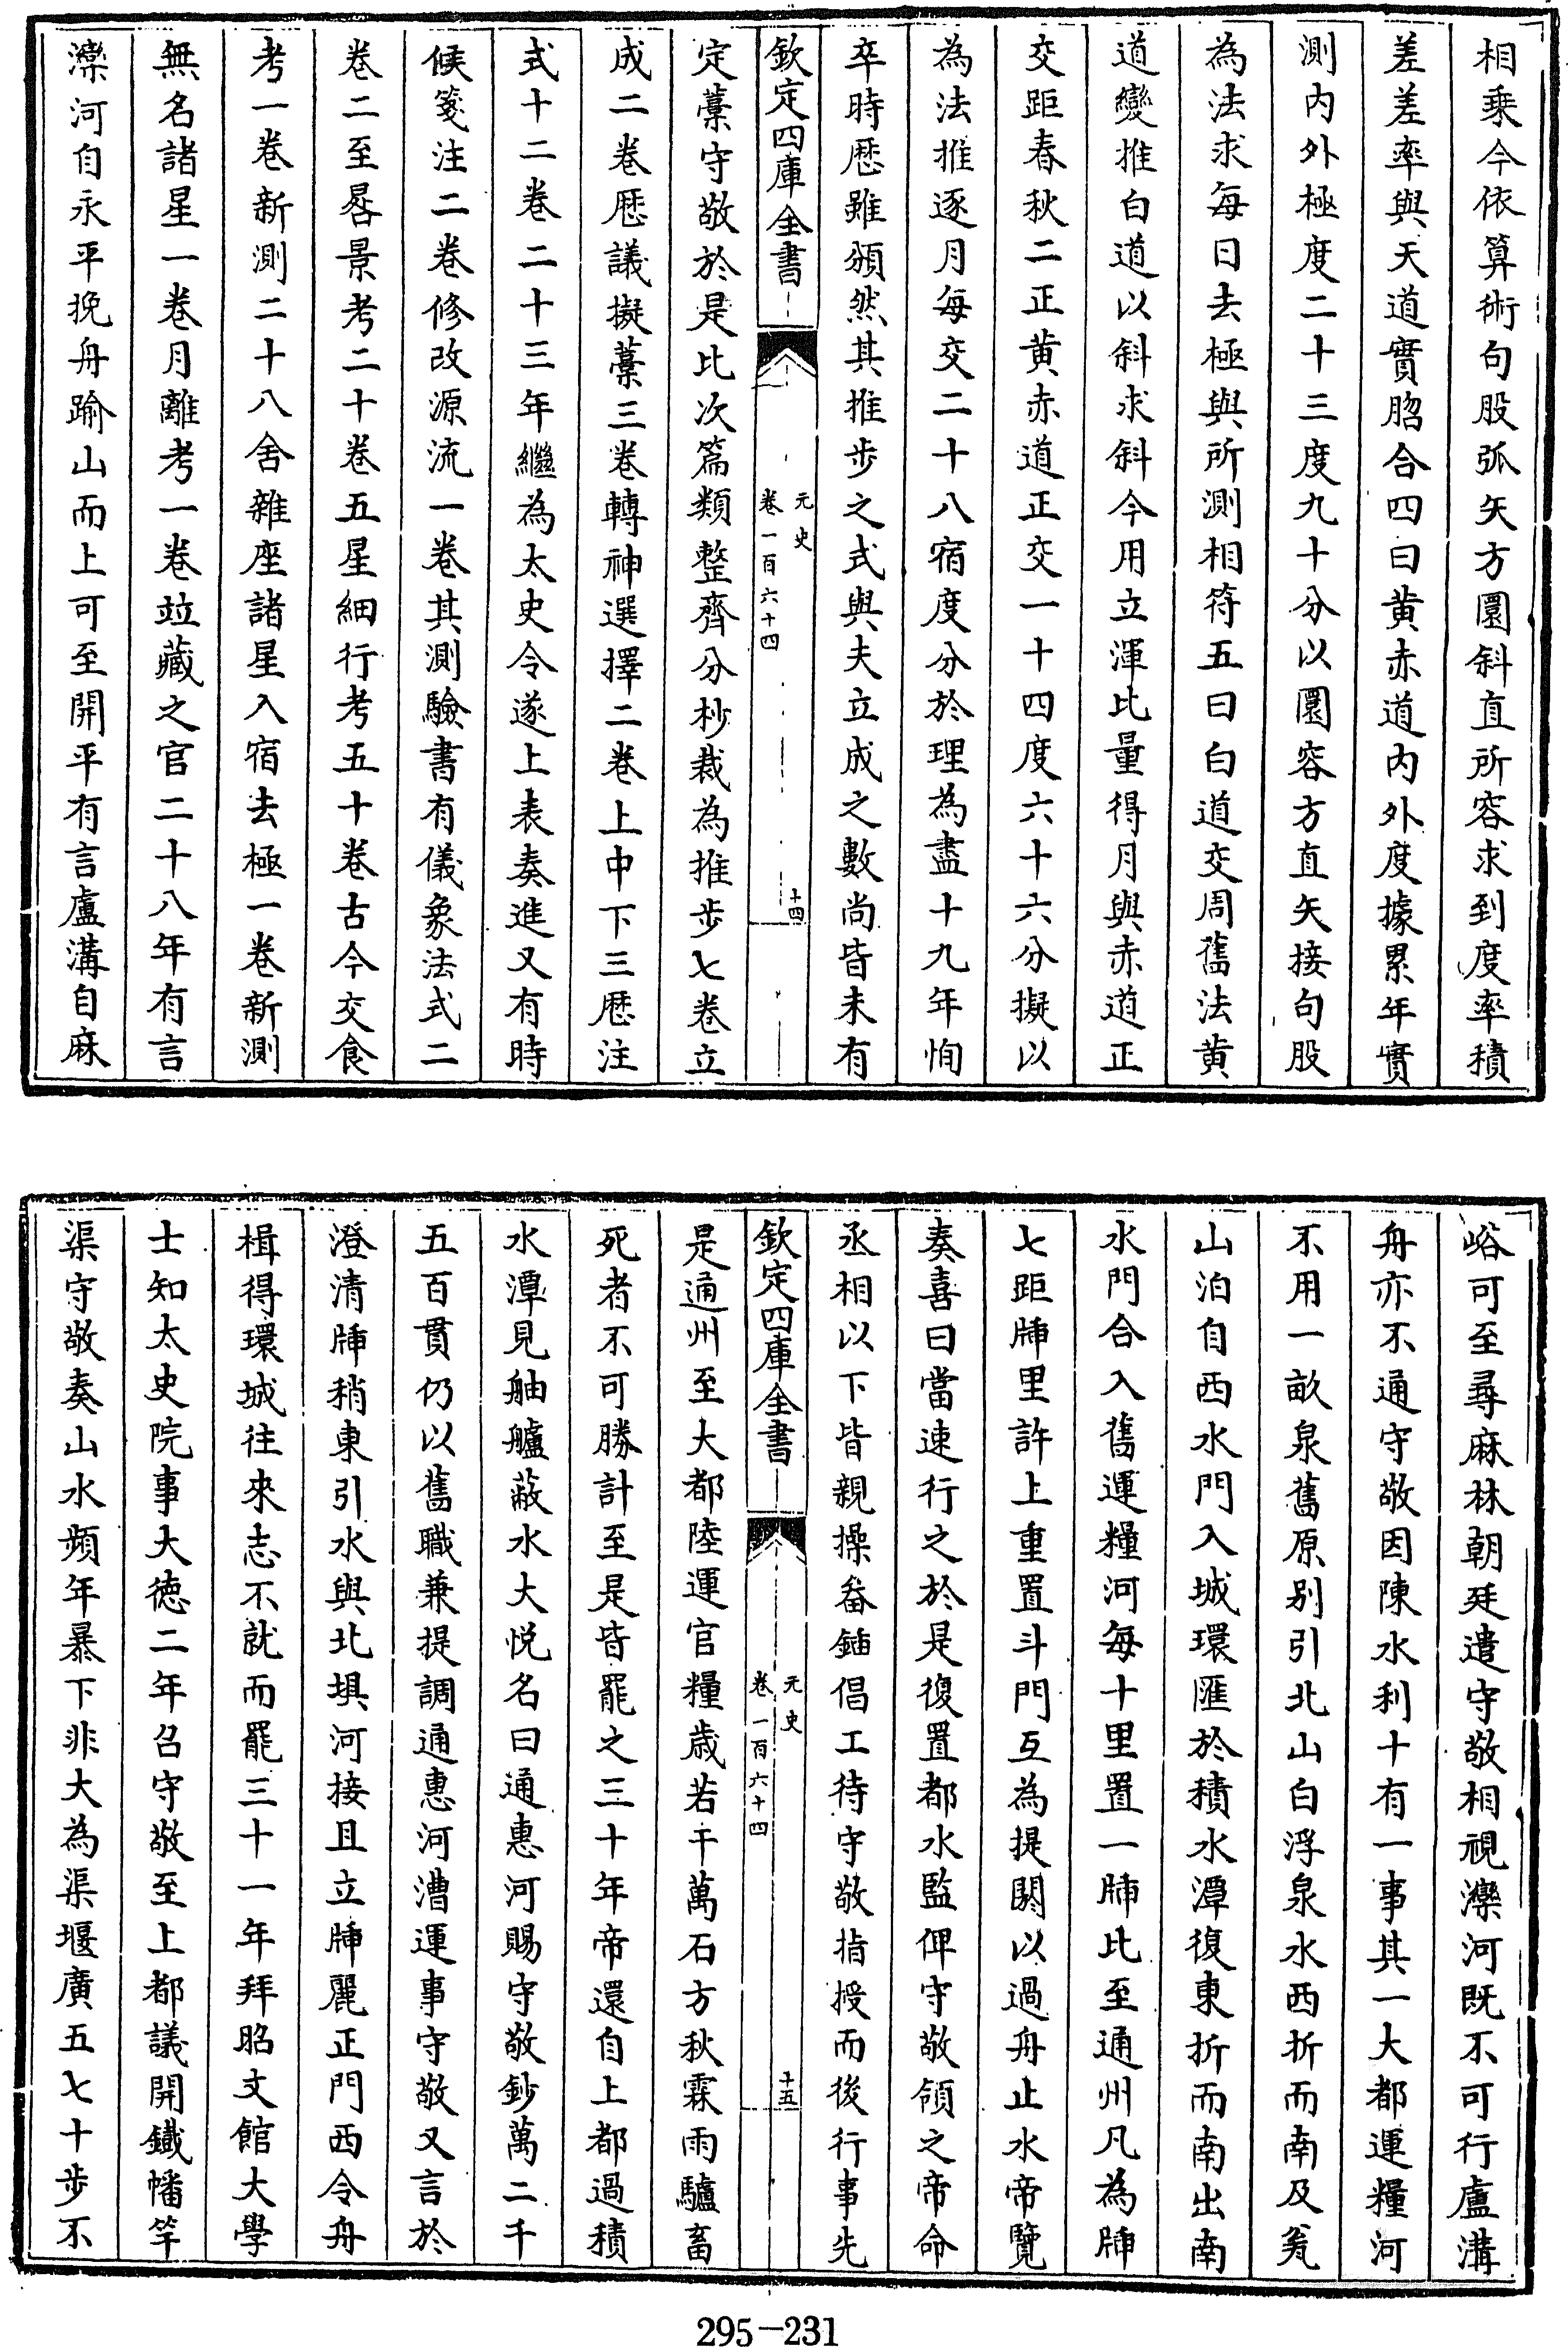 相乘今依算術句股弧矢方圜斜直所容求到度率積
差差率與天道實脗合四曰黄赤道内外度據累年實
測内外極度二十三度九十分以圜容方直矢接句股
為法求每日去極與所測相符五曰白道交周舊法黄
道變推白道以斜求斜今用立渾比量得月與赤道正
交距春秋二正黄赤道正交一十四度六十六分擬以
為法推逐月每交二十八宿度分於理為盡十九年恂
卒時厯雖頒然其推步之式與夫立成之數尚皆未有
欽定四庫全書
元史
卷一百六十四
十四
定藁守敬於是比次篇類整齊分杪裁為推步七卷立
成二卷厯議擬藁三卷轉神選擇二卷上中下三厯注
式十二卷二十三年繼為太史令遂上表奏進又有時
候箋注二卷修改源流一卷其測驗書有儀象法式二
卷二至晷景考二十卷五星細行考五十卷古今交食
考一卷新測二十八舍雜座諸星入宿去極一卷新測
無名諸星一卷月離考一卷竝藏之官二十八年有言
灤河自永平挽舟踰山而上可至開平有言盧溝自麻
峪可至尋麻林朝廷遣守敬相視灤河既不可行盧溝
舟亦不通守敬因陳水利十有一事其一大都運糧河
不用一畝泉舊原别引北山白浮泉水西折而南及瓮
山泊自西水門入城環匯於積水潭復東折而南出南
水門合入舊運糧河每十里置一牐比至通州凡為牐
七距牐里許上重置斗門互為提閼以過舟止水帝覽
奏喜曰當速行之於是復置都水監俾守敬領之帝命
丞相以下皆親操畚鍤倡工待守敬指授而後行事先
欽定四庫全書
元史
卷一百六十四
十五
是通州至大都陸運官糧歳若干萬石方秋霖雨驢畜
死者不可勝計至是皆罷之三十年帝還自上都過積
水潭見舳艫蔽水大悦名曰通惠河賜守敬鈔萬二千
五百貫仍以舊職兼提調通惠河漕運事守敬又言於
澄清牐稍東引水與北埧河接且立牐麗正門西令舟
楫得環城往來志不就而罷三十一年拜昭文館大學
士知太史院事大徳二年召守敬至上都議開鐵幡竿
渠守敬奏山水頻年暴下非大為渠堰廣五七十步不
295-231